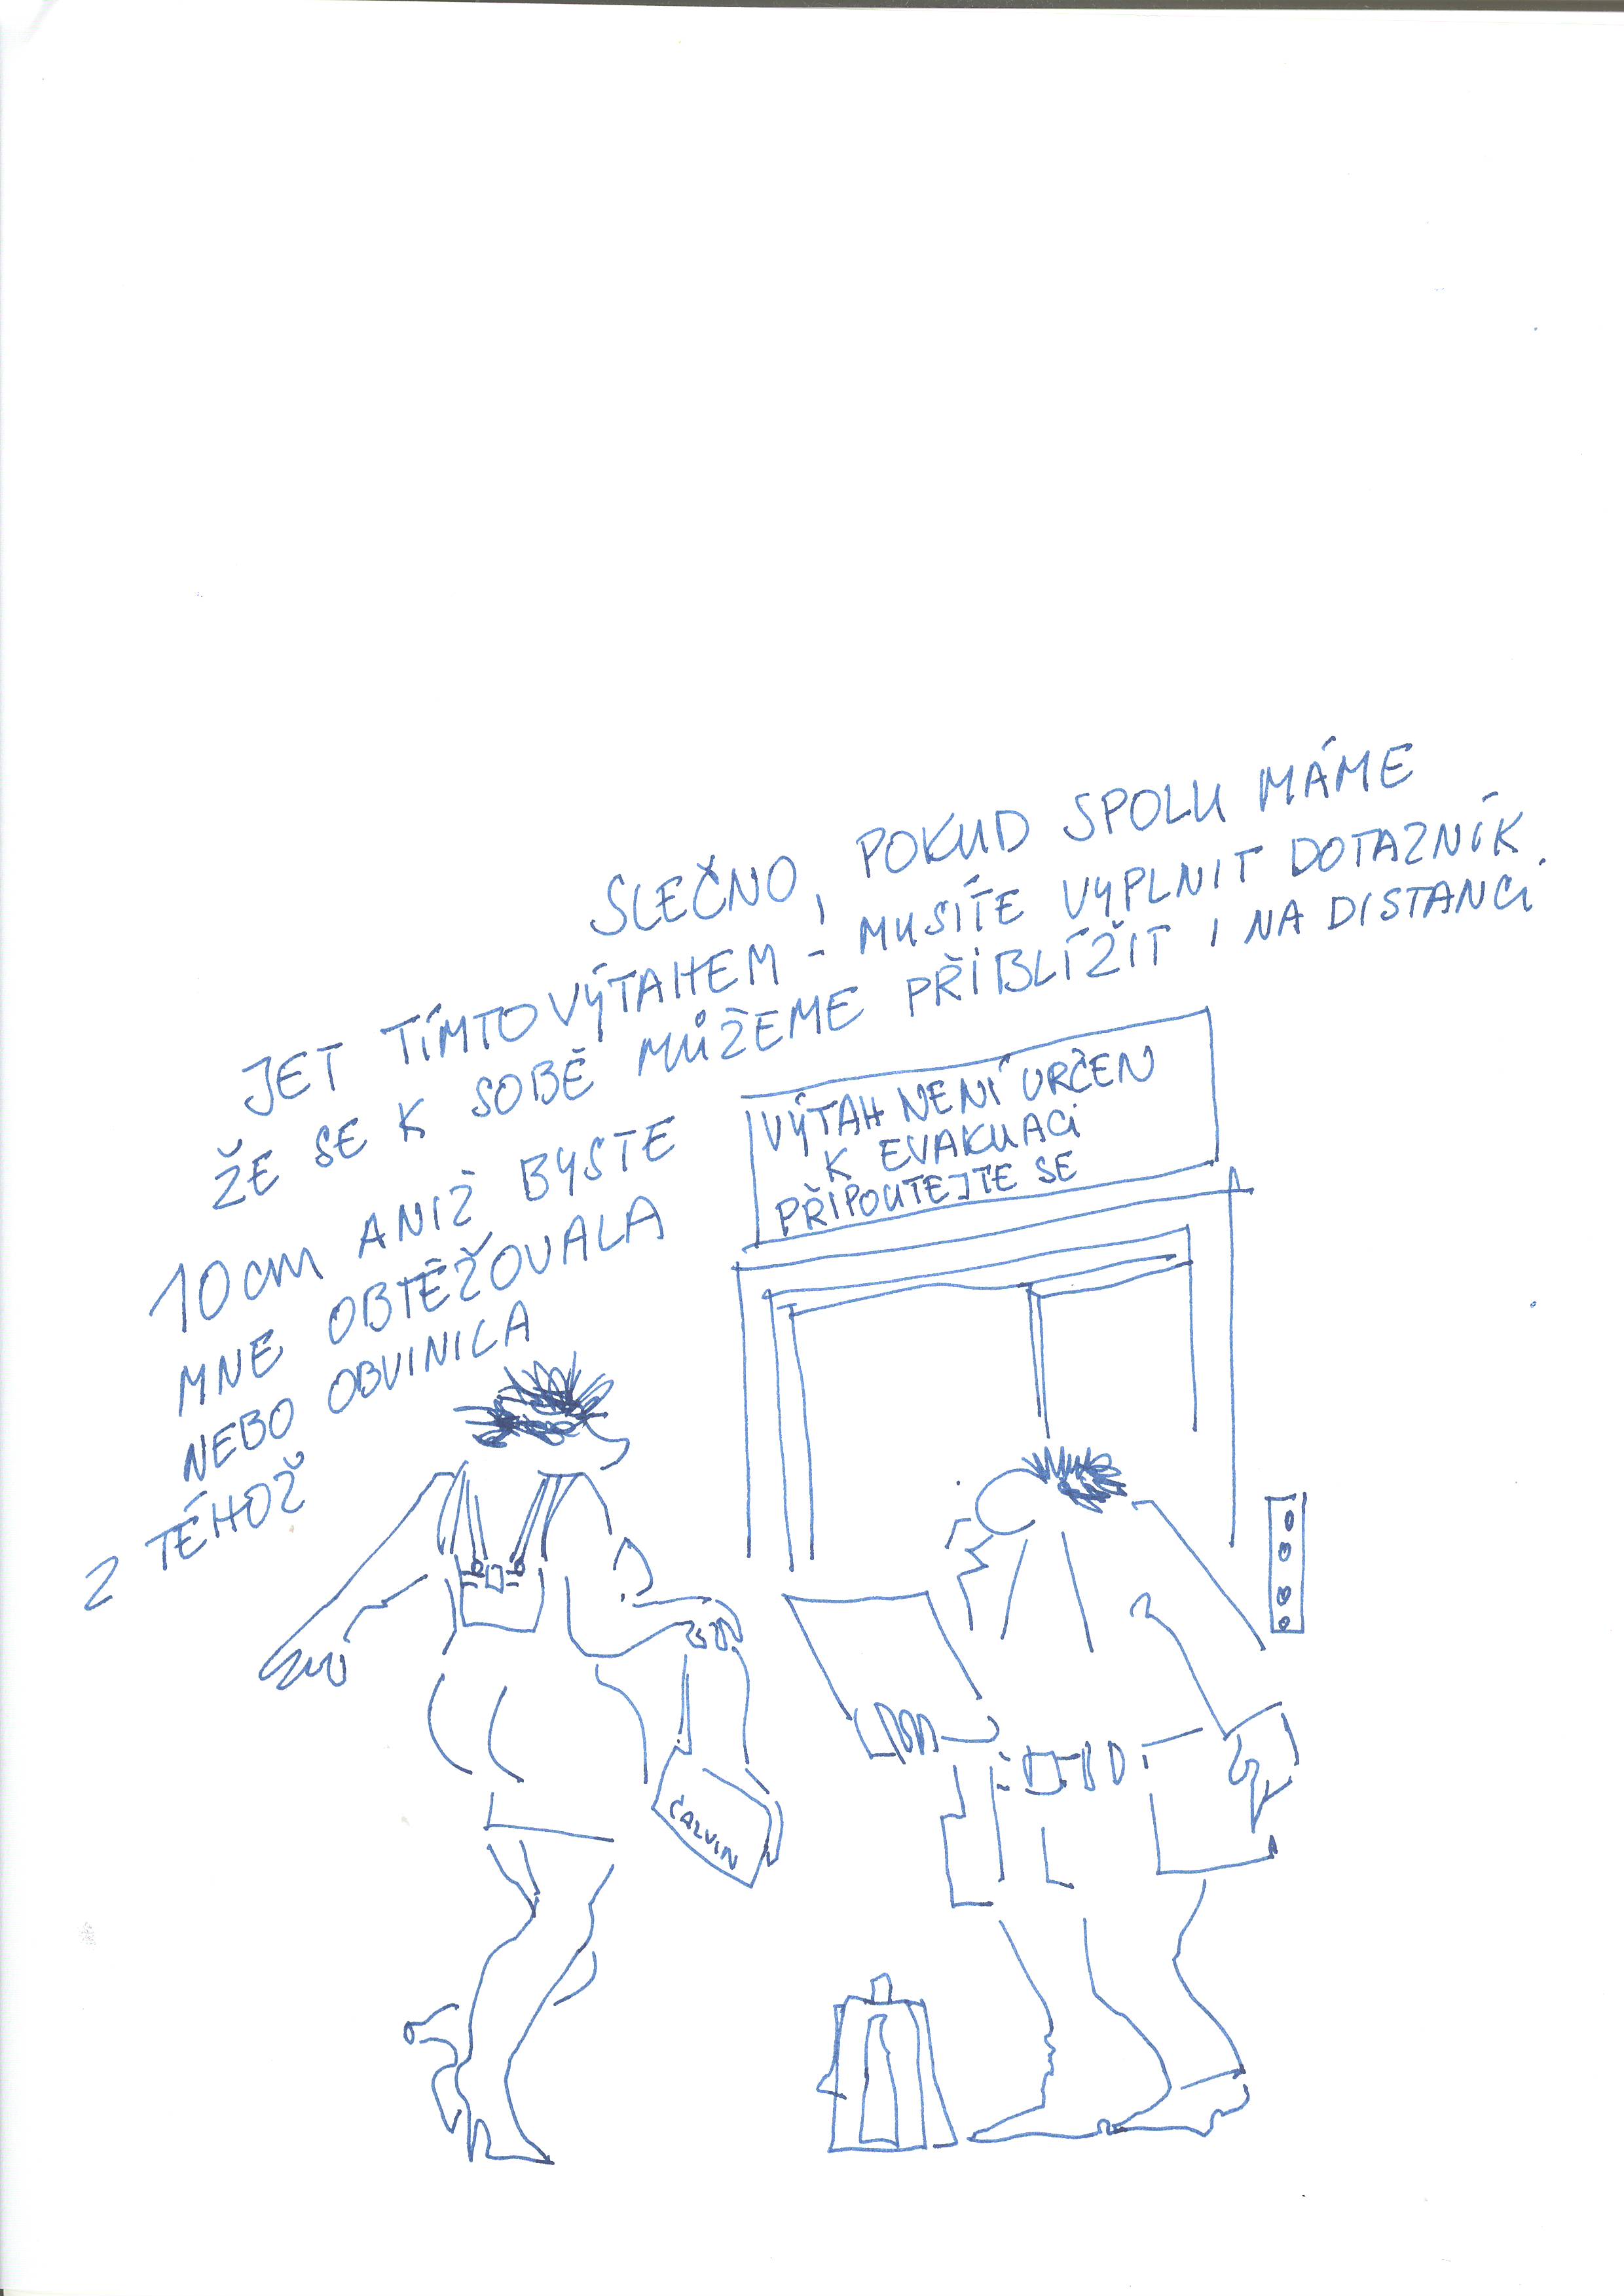 SLEČNO, POKUD SPOLU MÁME
JET TÍMTO VÝTAHEM - MUSÍTE VYPLNIT DOTAZNÍK
ŽE SE K SOBĚ MŮŽEME PŘIBLÍŽIT I NA DISTANCI
10 cm ANIŽ BYSTE
MNE OBTĚŽOVALA
NEBO OBVINILA
Z TÉHOŽ
VÝTAH NENÍ URČEN
K EVAKUACI
PŘIPOUTEJTE SE
CALVIN